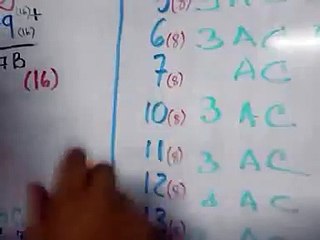 9(16)
7B
(16)
5(8)
6(8) 3 AC
7(8) AC
10(8) 3 AC
11(8) 3 AC
12(8) AC
13